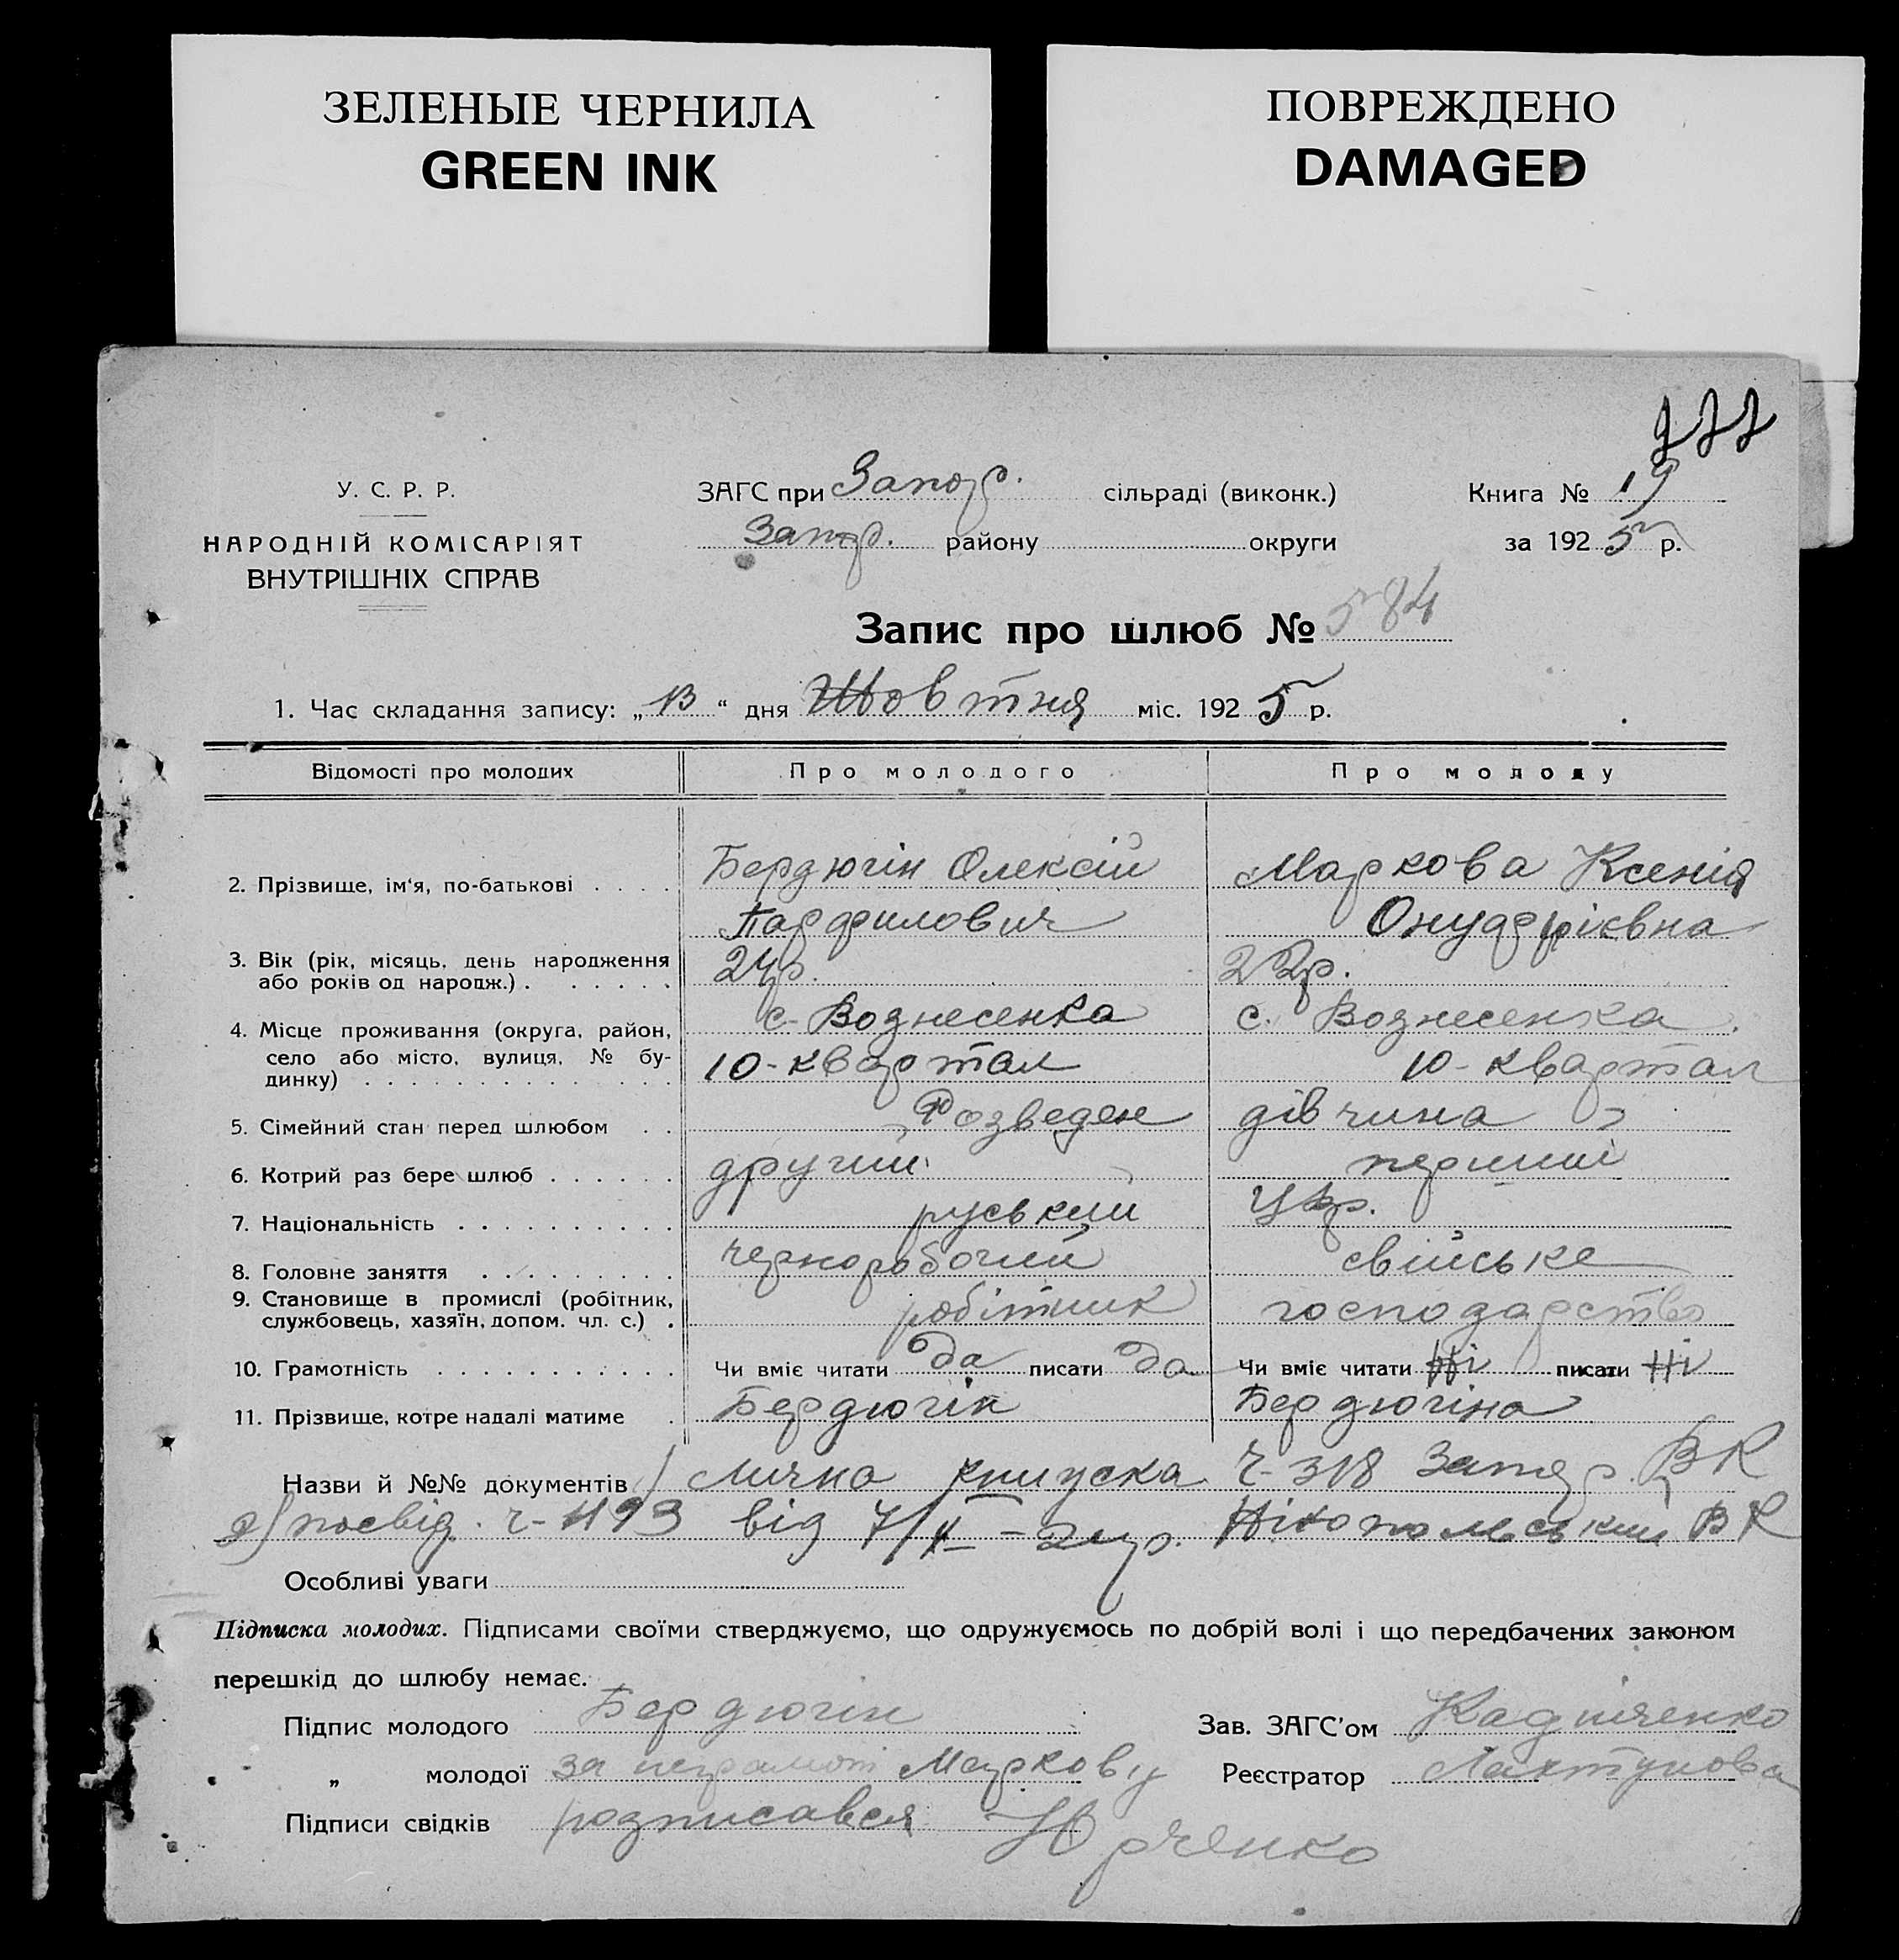 ЗЕЛЕНЫЕ ЧЕРНИЛА
GREEN INK
ПОВРЕЖДЕНО
DAMAGED
У. С. Р. Р.
НАРОДНІЙ КОМІСАРІЯТ
ВНУТРІШНІХ СПРАВ
ЗАГС при Запор. сільраді (виконк.)
Запор. району округи
Книга № 19
за 1925 р.
Запис про шлюб № 584
1. Час складання запису: „13“ дня Жовтня міс. 1925 р.
Відомості про молодих Про молодого Про молоду
2. Прізвище, ім'я, по-батькові Бердюгін Олексій Маркова Ксенія
Парфилович Онуфрієвна
3. Вік (рік, місяць, день народження 24р. 22р.
або років од народж.)
4. Місце проживання (округа, район, с. Вознесенка с. Вознесенка
село або місто, вулиця, № бу- 10-квартал 10-квартал
динку)
5. Сімейний стан перед шлюбом Розведен дівчина
6. Котрий раз бере шлюб другий перший
7. Національність руський Укр.
8. Головне заняття чернорабочий свійське
9. Становище в промислі (робітник, робітник господарство
службовець, хазяїн, допом. чл. с.)
10. Грамотність Чи вміє читати да писати да Чи вміє читати Ні писати Ні
11. Прізвище, котре надалі матиме Бердюгін Бердюгіна
Назви й №№ документів Лична книжка ч-318 Запор. ВК
2) посвід. ч-4193 від 7/ Нікопольський ВК
Особливі уваги
Підписка молодих. Підписами своїми стверджуємо, що одружуємось по добрій волі і що передбачених законом
перешкід до шлюбу немає.
Підпис молодого Бердюгін Зав. ЗАГС'ом
„ молодої за неграмотн Маркову Реєстратор Лахтунова
Підписи свідків розписався Юрченко